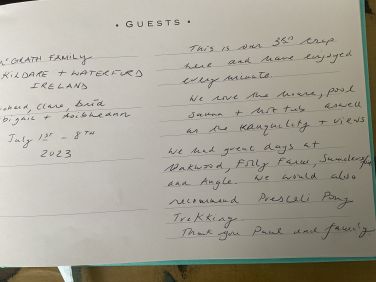 • GUESTS •
GRATH FAMILY
KILDARE + WATERFORD
IRELAND
Clare, Bríd
+ Aoibheann
July 1st - 8TH
2023
This is our 3rd trip
here and have enjoyed
every minute.
We love the house, pool
sauna + hot tub aswell
as the tranquility + views
We had great days at
Oakwood, Folly Farm,
and Angle. We would also
recommend Preseli Pony
Trekking
Thank you Paul and family